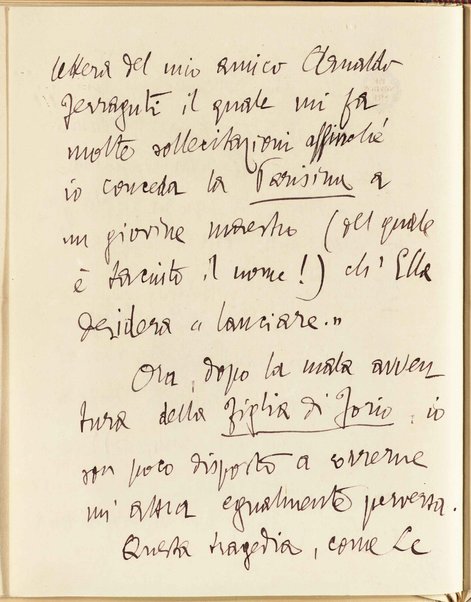 lettera del mio amico Arnaldo
Ferraguti il quale mi fa
molte sollecitazioni affinché
io conceda la Parisina a
un giovine maestro (del quale
è taciuto il nome!) ch' Ella
desidera « lanciare. »
Ora, dopo la mala avven-
tura della Figlia di Jorio, io
son poco disposto a correrne
un' altra egualmente perversa.
Questa tragedia, come Le